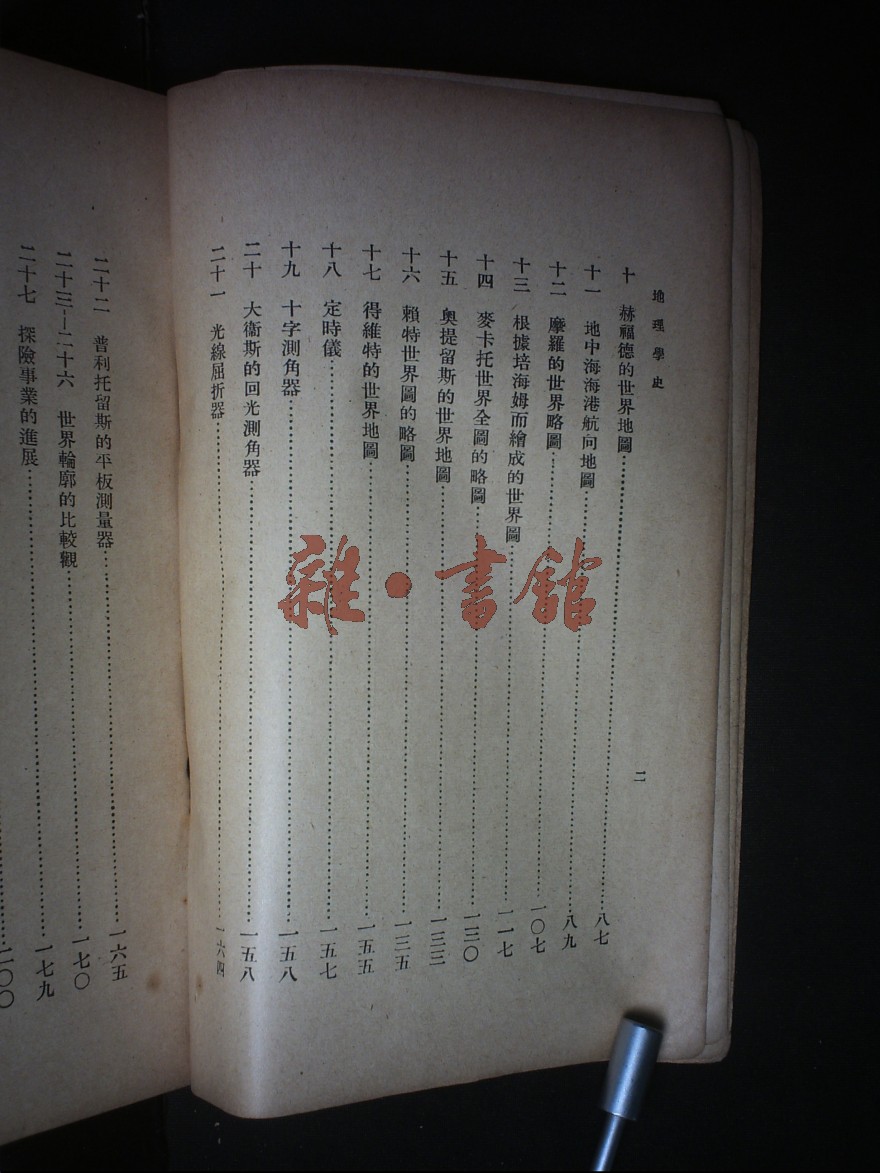 地理學史
二
十　赫福德的世界地圖……八七
十一　地中海海港航向地圖……八九
十二　摩羅的世界略圖……一〇七
十三　根據培海姆而繪成的世界圖……一一七
十四　麥卡托世界全圖的略圖……一三〇
十五　奧提留斯的世界地圖……一三三
十六　賴特世界圖的略圖……一三五
十七　得維特的世界地圖……一五五
十八　定時儀……一五七
十九　十字測角器……一五八
二十　大衞斯的回光測角器……一五八
二十一　光線屈折器……一六四
二十二　普利托留斯的平板測量器……一六五
二十三—二十六　世界輪廓的比較觀……一七〇
二十七　探險事業的進展……一七九
二〇〇
雜·書館